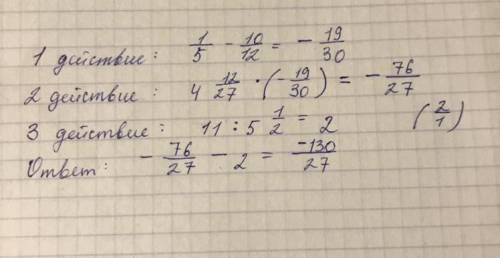 1 действие: 1/5 - 10/12 = - 19/30
2 действие: 4 12/27 · (- 19/30) = - 76/27
3 действие: 11 : 5 1/2 = 2 (2/1)
Ответ: - 76/27 - 2 = -130/27